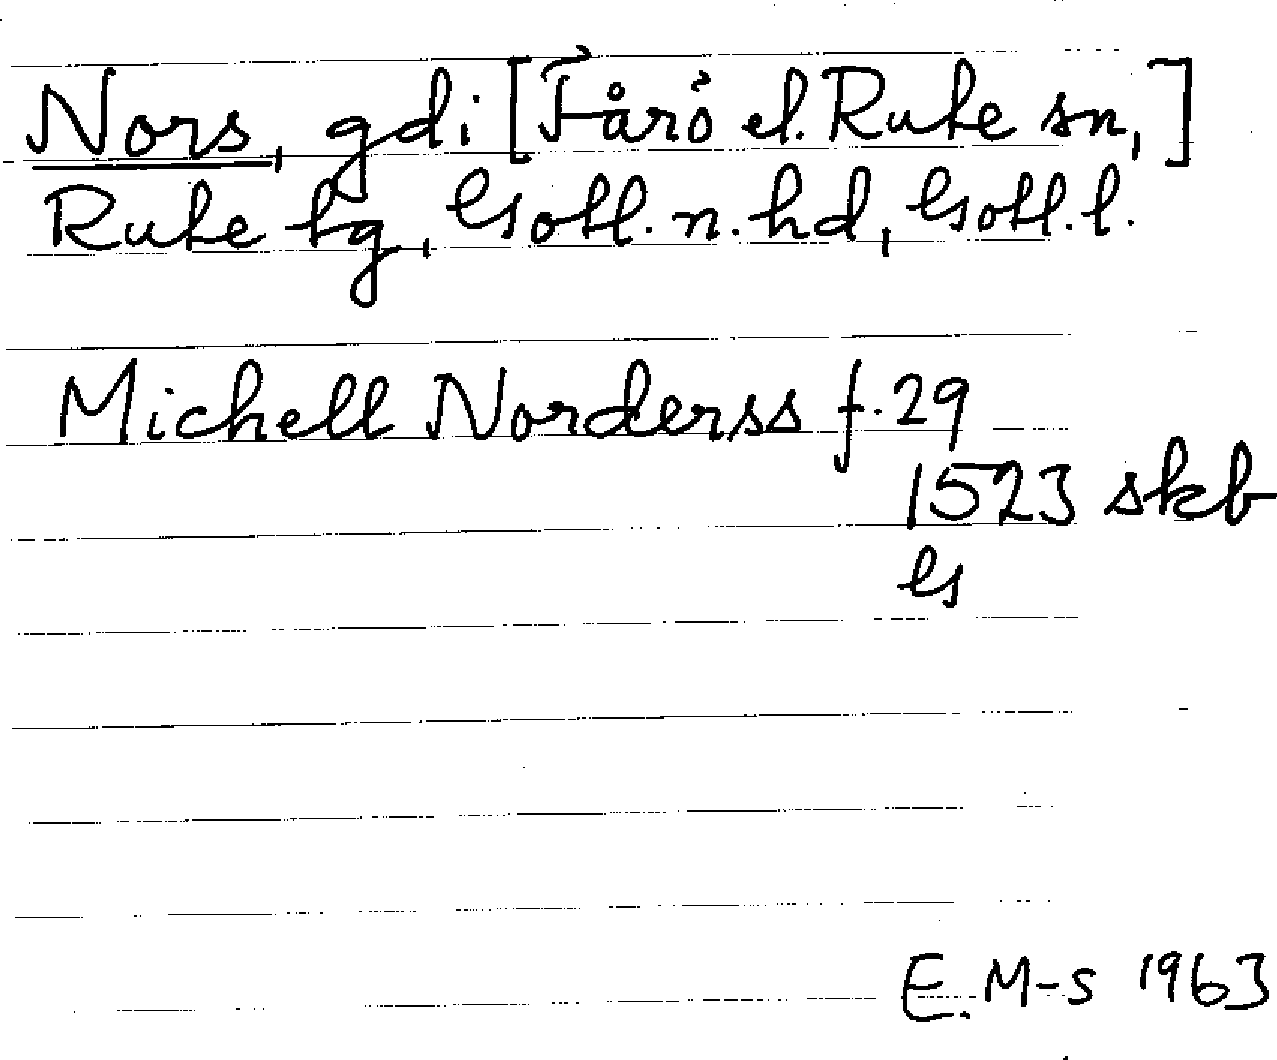 Nors, gd i [Fårö el. Rute sn,]
Rute tg, Gotl. n. hd, Gotl. l.
Michell Norderss f. 29
1523 skb
G
E. M-s 1963